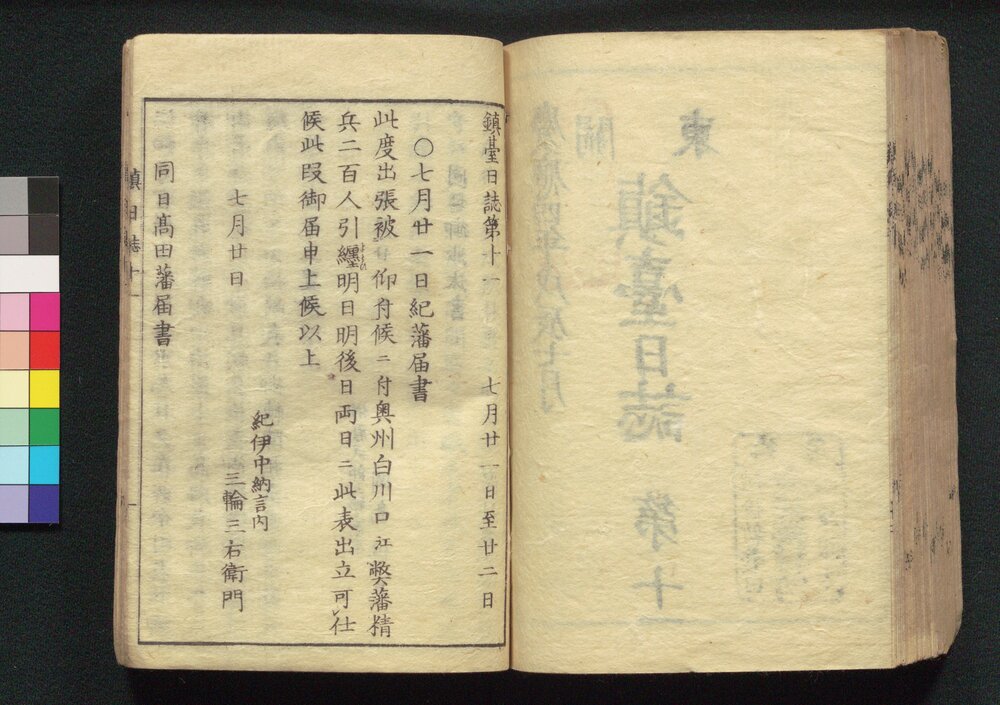 鎮臺日誌第十一　七月廿一日至廿二日
〇七月廿一日紀藩届書
此度出張被　仰付候ニ付奥州白川口江弊藩精
兵二百人引纏明日明後日両日ニ此表出立可仕
候此段御届申上候以上
紀伊中納言内
七月廿日　三輪三右衛門
同日髙田藩届書
鎮日誌十一